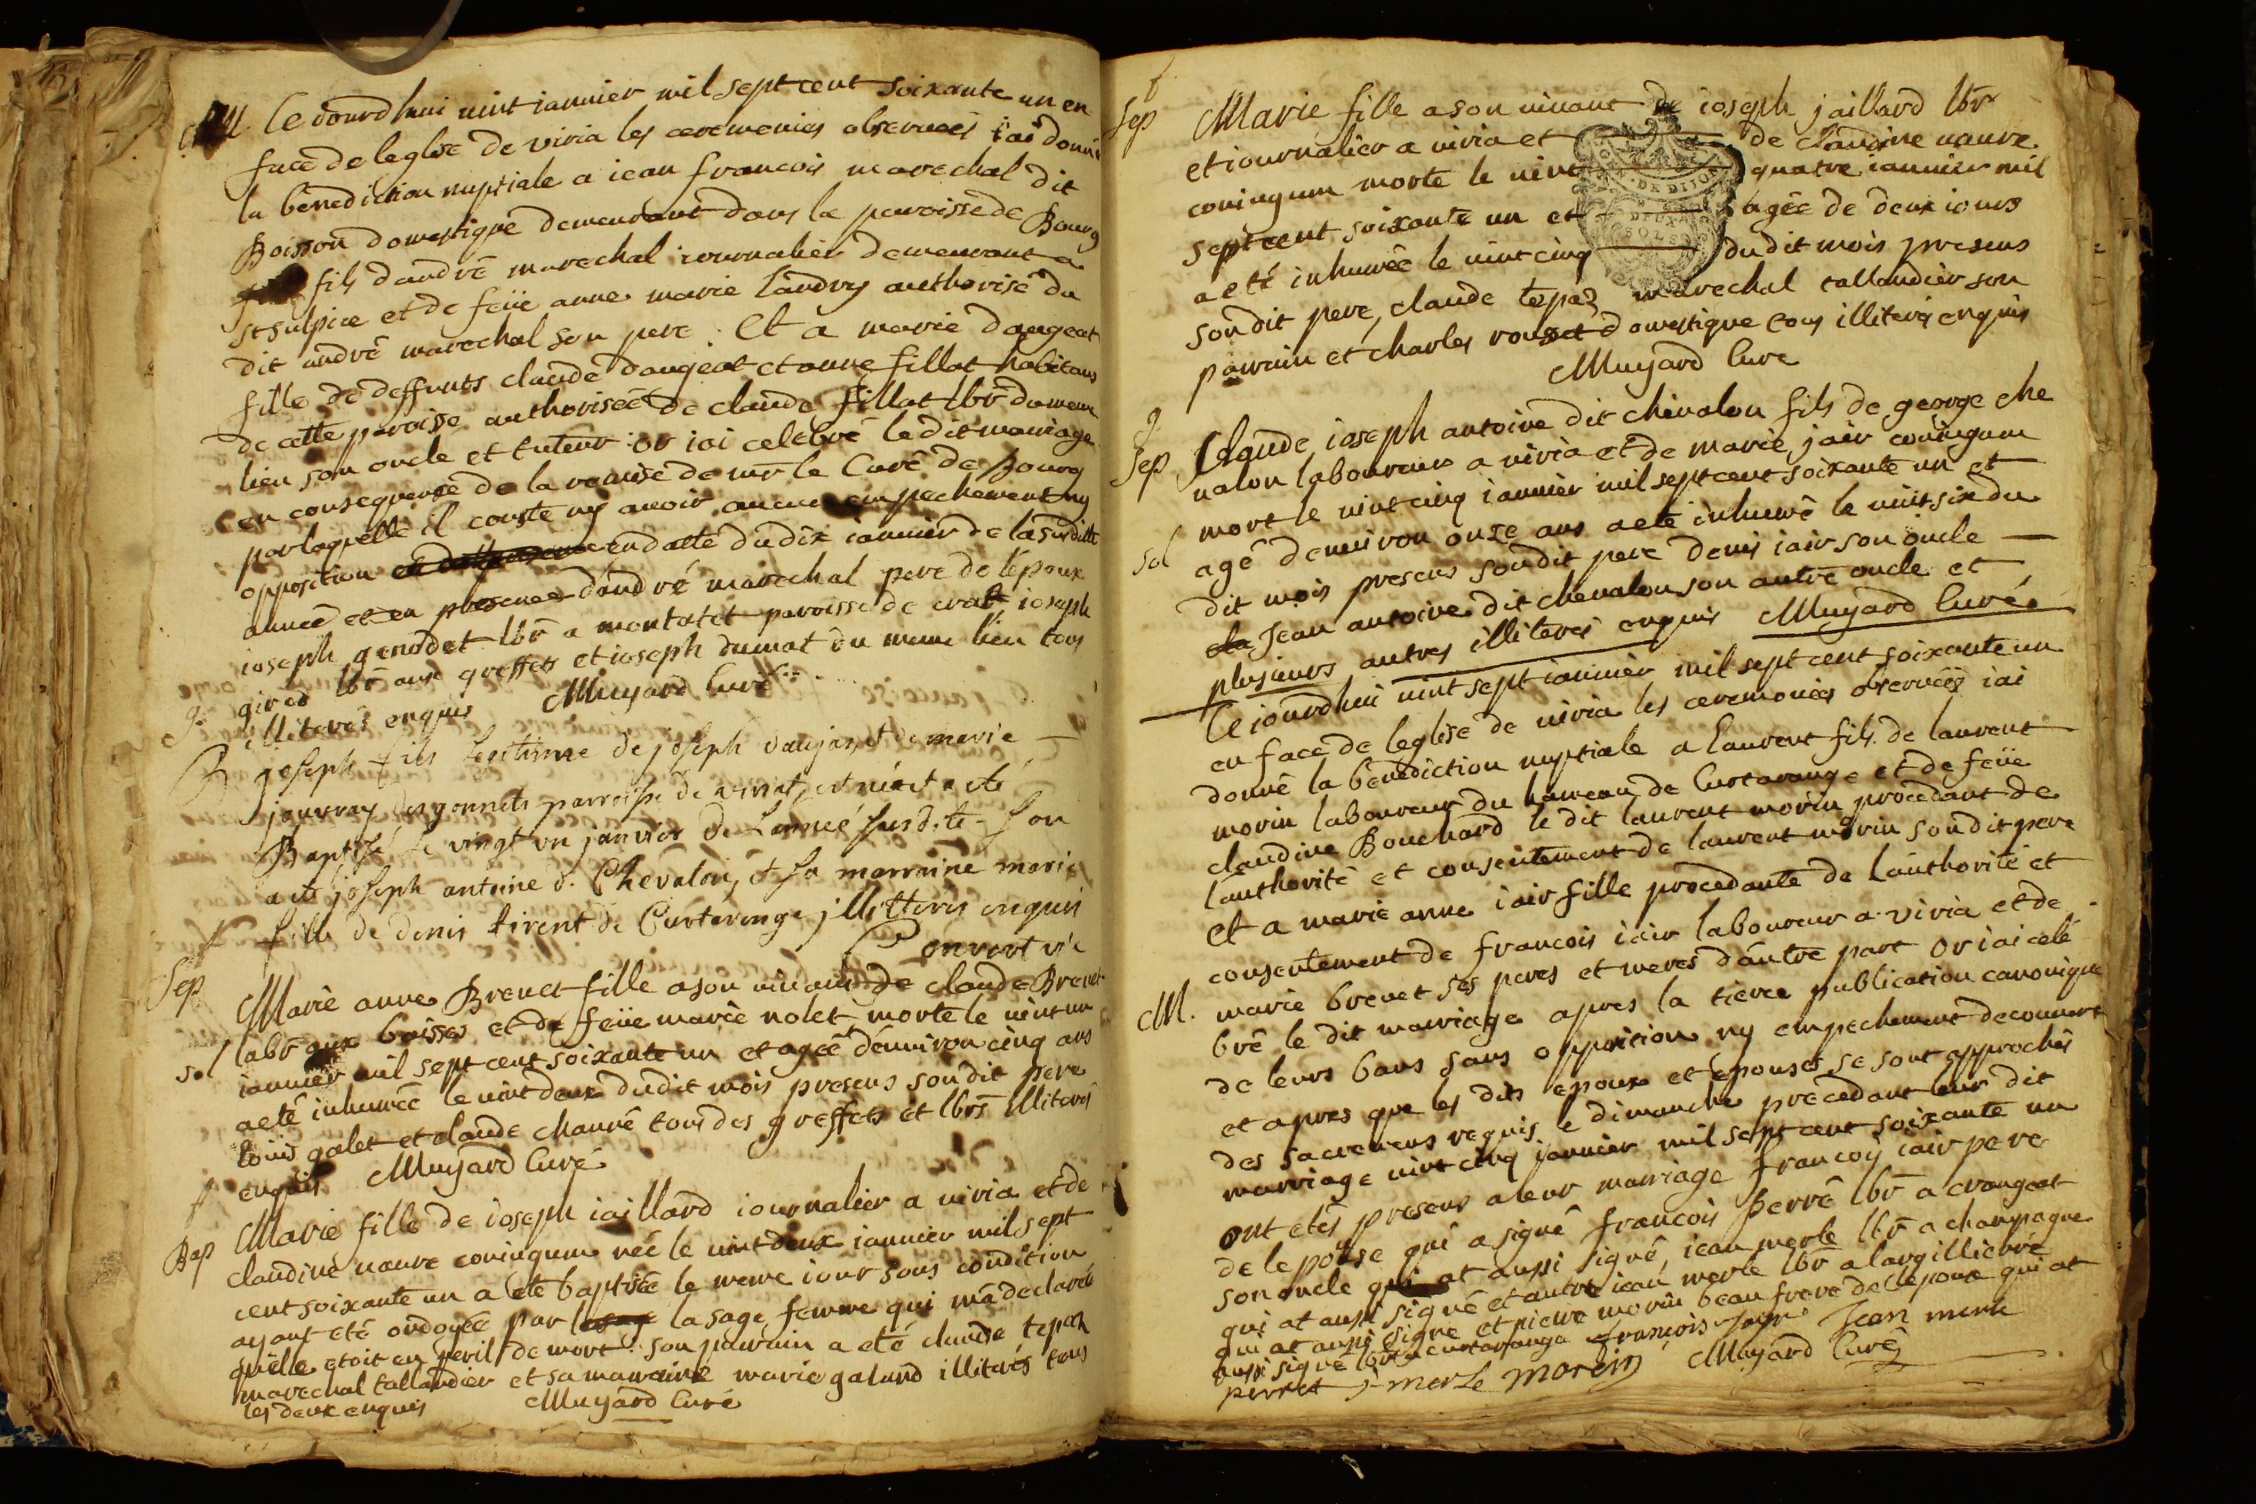 M Ce iourdhui vint iannier mil sept cent soixante un en
face de leglise de viria les ceremonies obseruées i'ai donné
la benediction nuptiale a iean francois marechal dit
Boisson domestique demeurant dans la paroisse de Bourg
fils dandré marechal iournalier demeurant a
st sulpice et de feüe anne marie landry authorisé du
dit andré marechal son pere. Et a marie dangeat
fille de deffunts claude dangeat et anne fillot habitans
de cette paroisse authorisée de claude fillot lbr du meme
lieu son oncle et tuteur or iai celebré le dit mariage
en consequence de la remise de mr le Curé de Bourg
par laquelle il conste ny auoir aucun empechement ny
opposition en datte du dix iannier de la susditte
année et en presence dandré marechal pere de l'époux
ioseph genodet lbr a montatet paroisse de cras ioseph
girod lbr aux greffets et ioseph dumat du meme lieu tous
illiterés enquis Muyard Curé
g.
B joseph fils legitime de joseph daujat et de marie
jouvray des gonnets parroisse de viriat, est né et a eté
Baptisé le vingt un janvier de l'année susdite - son
a eté joseph antoine d. Chevalon, et sa marraine marie
fille de denis tirent de Curtaringe jllitterés enquis
Convert vic
f
Sep Marie anne Brevet fille a son viuant de claude Brevet
labr aux baisses et de feüe marie nolet morte le vint un
sol iannier mil sept cent soixante un et agée d'enuiron cinq ans
a eté inhumée le vint deux dudit mois presens son dit pere
louis galet et claude chanré tous des greffets et lbrs illiterés
enquis Muyard Curé
f
Bap Marie fille de ioseph iaillard iournalier a viria et de
claudine nanre coniugum née le vint deux iannier mil sept
cent soixante un a eté baptisée le meme iour sous condition
ayant eté ondoyée par la sage femme qui m'a declaré
qu'elle etoit en peril de mort. son parrain a eté claude tepaz
marechal tallandier et sa marraine marie galand illiterés tous
les deux enquis Muyard Curé
f
Sep Marie fille a son viuant de ioseph jaillard lbr
et iournalier a viria et de claudine nanre
coniugum morte le vint quatre iannier mil
sept cent soixante un et agée de deux iours
a eté inhumée le vint cinq dudit mois presens
son dit pere, claude tepaz marechal tallandier son
parrain et charles rousset domestique tous illiterés enquis
Muyard Cure
DE DIJON
DEUX
SOLS
g
Sep Claude ioseph antoine dit chevalon fils de george che
valon laboureur a viria et de marie jair coniugum
mort le vint cinq iannier mil sept cent soixante un et
sol agé denuiron onze ans a eté inhumé le vint six du
dit mois presens son dit pere denis iair son oncle
Jean antoine dit chevalon son autre oncle et
plusieurs autres illiterés enquis Muyard Curé
Ce iourdhui vint sept iannier mil sept cent soixante un
en face de leglise de viria les ceremonies obseruées iai
donné la benediction nuptiale a laurent fils de laurent
morin laboureur du hameau de Curtarange et de feüe
claudine Bouchard le dit laurent morin procedant de
l'authorité et consentement de laurent morin son dit pere
et a marie anne iair fille procedante de l'authorité et
consentement de francois iair laboureur a viria et de
M. marie brevet ses peres et meres d'autre part or iai celé
bré le dit mariage apres la tierce publication canonique
de leurs bans sans opposition ny empechement decouvert
et apres que les dits epoux et epouses se sont approchés
des sacremens requis le dimanche precedant leur dit
marriage vint cinq iannier mil sept cent soixante un
ont etés presens a leur marriage francoy iair pere
de lepouse qui a signé francois Perré lbr a crangeat
son oncle qui at aussi signé, iean merle lbr a champagne
qui at aussi signé et autre iean merle lbr a largilliere
qui at aussi signe et pierre morin beau frere de lepoux qui at
aussi signé lbr a curtaranga francois Jair Jean merle
perret j merle morein Muyard Curé